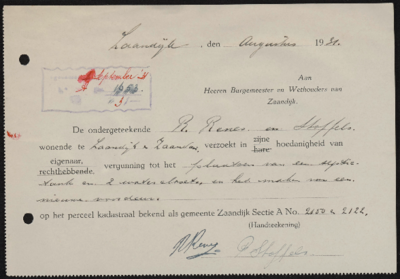 Zaandijk, den Augustus 1931.
September 31
1956
31
Aan
Heeren Burgemeester en Wethouders van
Zaandijk.
De ondergeteekende R. Renes en Stoffels
wonende te Zaandijk & Zaandam verzoekt in zijne hoedanigheid van
hare
eigenaar, vergunning tot het plaatsen van een septic-
rechthebbende,
tank en 2 waterclosets en het maken van een
nieuwe
op het perceel kadastraal bekend als gemeente Zaandijk Sectie A No. 2120 & 2122.
(Handteekening)
R Renes
P Stoffels